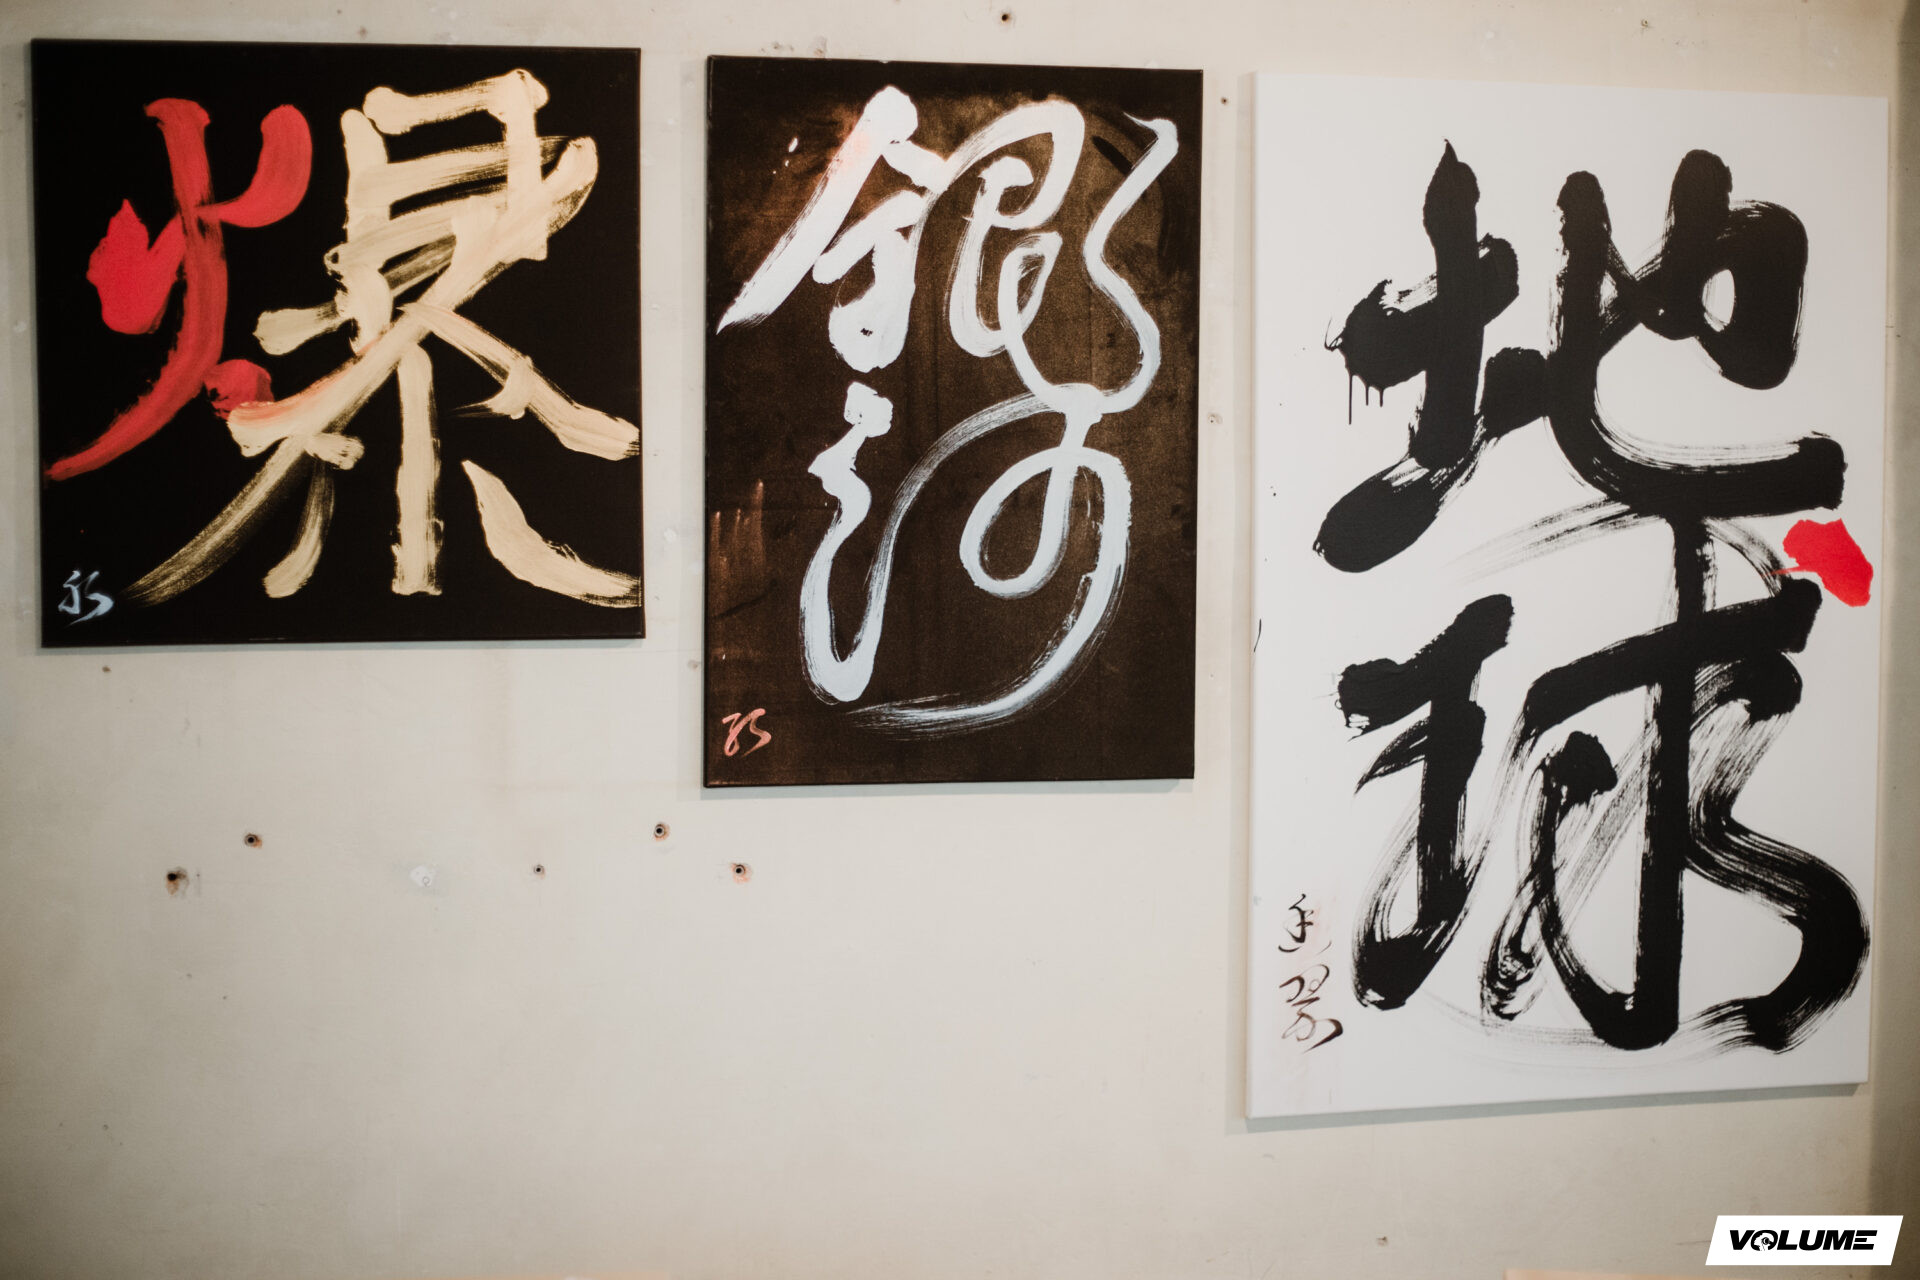 爆
銀河
地球
VOLUME